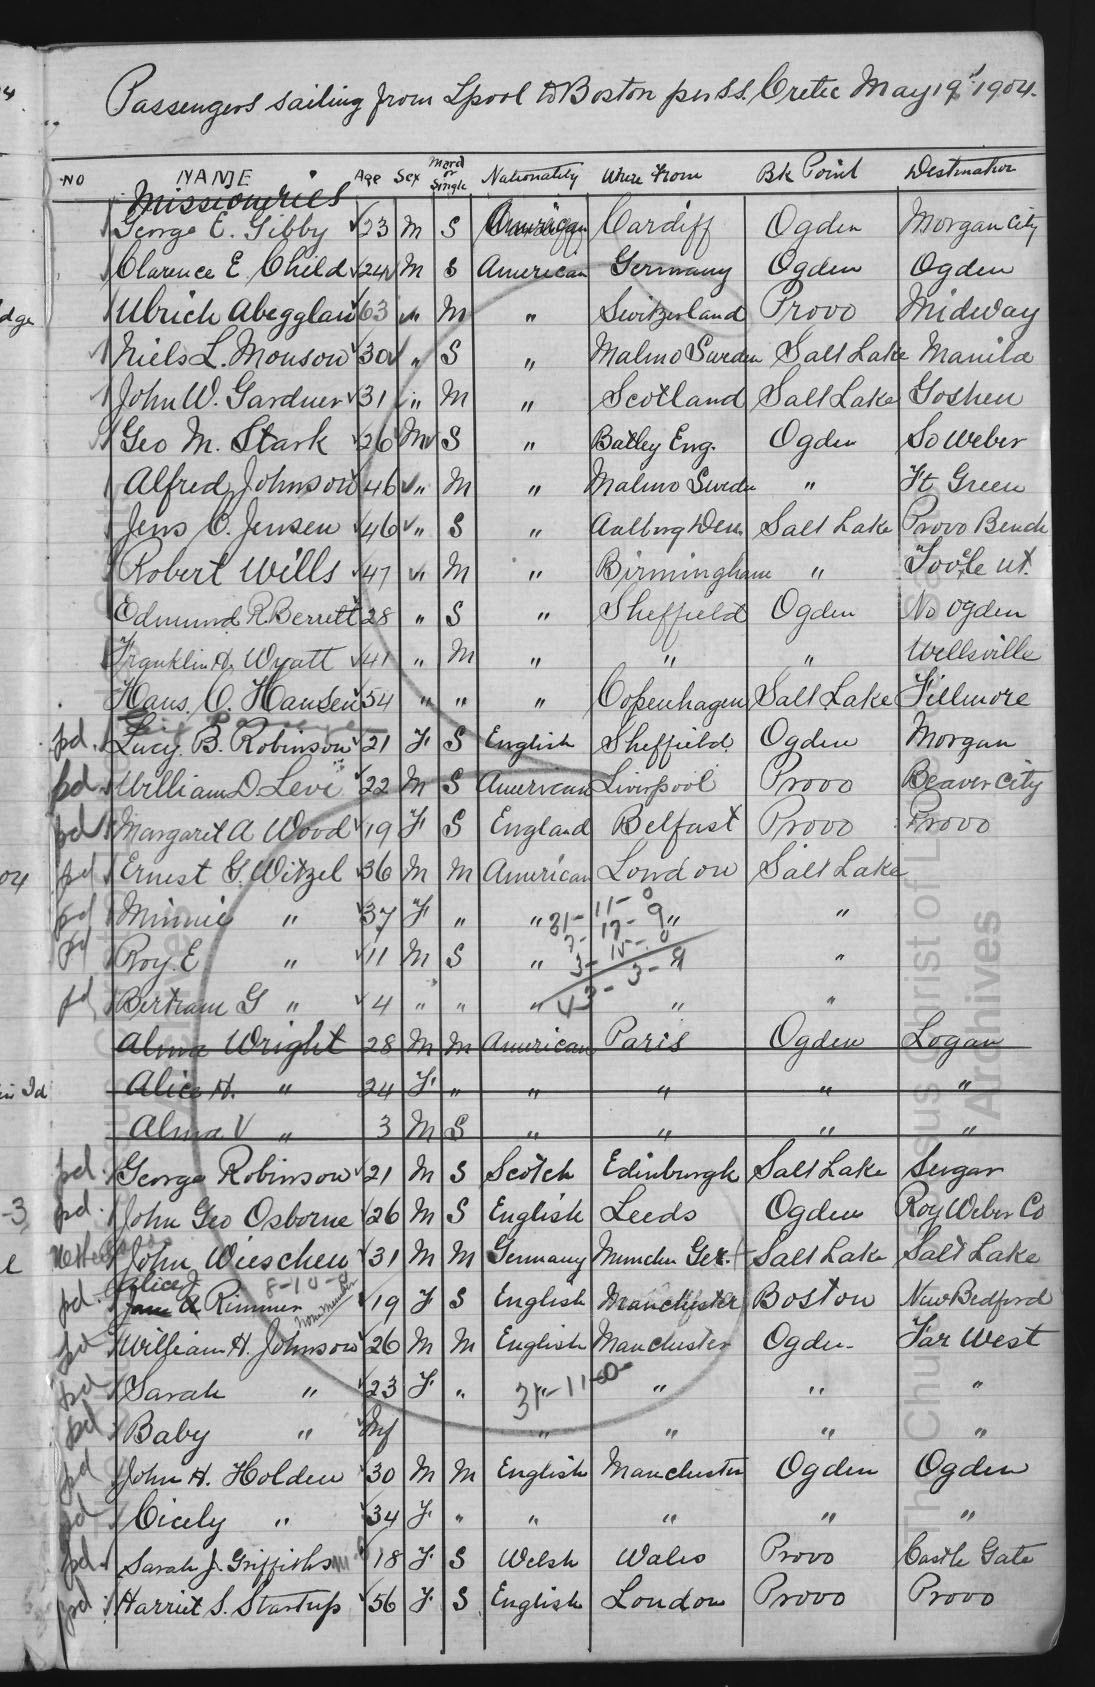 Passengers sailing from Lpool to Boston per S.S. Cretic May 19th 1904.
NO NAME Age Sex Mard or Single Nationality Where From Bk Point Destination
Missionaries
George E. Gibby 23 M S American Cardiff Ogden Morgan City
Clarence E. Child 24 M S American Germany Ogden Ogden
Ulrich Abegglan 63 " M " Switzerland Provo Midway
Niels L. Monson 30 " S " Malmo Sweden Salt Lake Manila
John W. Gardner 31 " M " Scotland Salt Lake Goshen
Geo M. Stark 26 M S " Batley Eng. Ogden So Weber
Alfred Johnson 46 " M " Malmo Swede " Ft Green
Jens C. Jensen 46 " S " Aalborg Den. Salt Lake Provo Bench
Robert Wills 47 " M " Birmingham " Tooele Ut.
Edmund R. Berrett 28 " S " Sheffield Ogden No Ogden
Franklin H. Wyatt 41 " M " " " Wellsville
Hans C. Hansen 54 " " " Copenhagen Salt Lake Fillmore
pd. Lucy B. Robinson 21 F S English Sheffield Ogden Morgan
pd. William D Levi 22 M S American Liverpool Provo Beaver City
pd Margaret A Wood 19 F S England Belfast Provo Provo
pd Ernest G. Witzel 36 M M American London Salt Lake
pd Minnie " 37 F " " 31-11-0 " "
pd Roy E " 11 M S " "
7-17-9
3-15-0
pd Bertram G " 4 " " " " "
43-3-9
Alma Wright 28 M M American Paris Ogden Logan
Alice H. " 24 F " " " " "
Alma V " 3 M S " " " "
pd. George Robinson 21 M S Scotch Edinburgh Salt Lake Sugar
pd. John Geo Osborne 26 M S English Leeds Ogden Roy Weber Co
John Wieschen 31 M M Germany Munchen Ger. Salt Lake Salt Lake
Alice J. 8-10-0
pd. Jane A Rimmer Non Member 19 F S English Manchester Boston New Bedford
pd William H. Johnson 26 M M English Manchester Ogden Far West
pd Sarah " 23 F " 31-11-0 " " "
pd Baby " Inf " " " "
pd John H. Holden 30 M M English Manchester Ogden Ogden
pd Cicely " 34 F " " " " "
pd Sarah J. Griffiths 18 F S Welsh Wales Provo Castle Gate
pd Harriet S. Startup 56 F S English London Provo Provo